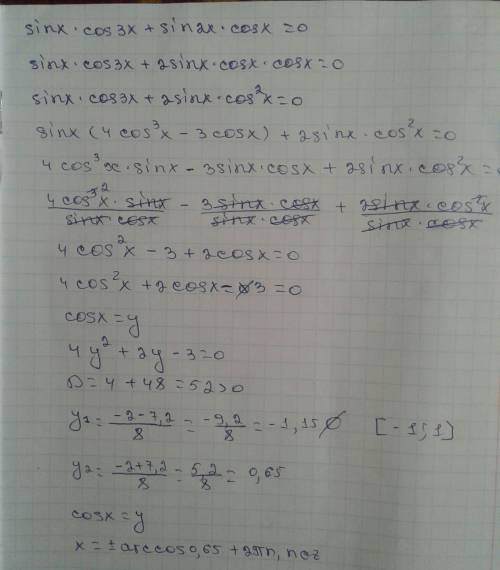 sinx · cos3x + sin2x · cosx = 0
sinx · cos3x + 2sinx · cosx · cosx = 0
sinx · cos3x + 2sinx · cos²x = 0
sinx (4cos³x - 3cosx) + 2sinx · cos²x = 0
4cos³x · sinx - 3sinx · cosx + 2sinx · cos²x =
4cos³²x · sinx / sinx · cosx - 3sinx · cosx / sinx · cosx + 2sinx · cos²x / sinx · cosx
4cos²x - 3 + 2cosx = 0
4cos²x + 2cosx - 3 = 0
cosx = y
4y² + 2y - 3 = 0
D = 4 + 48 = 52 > 0
y₁ = -2-7,2 / 8 = -9,2 / 8 = -1,15 ∅ [-1;1]
y₂ = -2+7,2 / 8 = 5,2 / 8 = 0,65
cosx = y
x = ± arccos0,65 + 2πn, n∈z